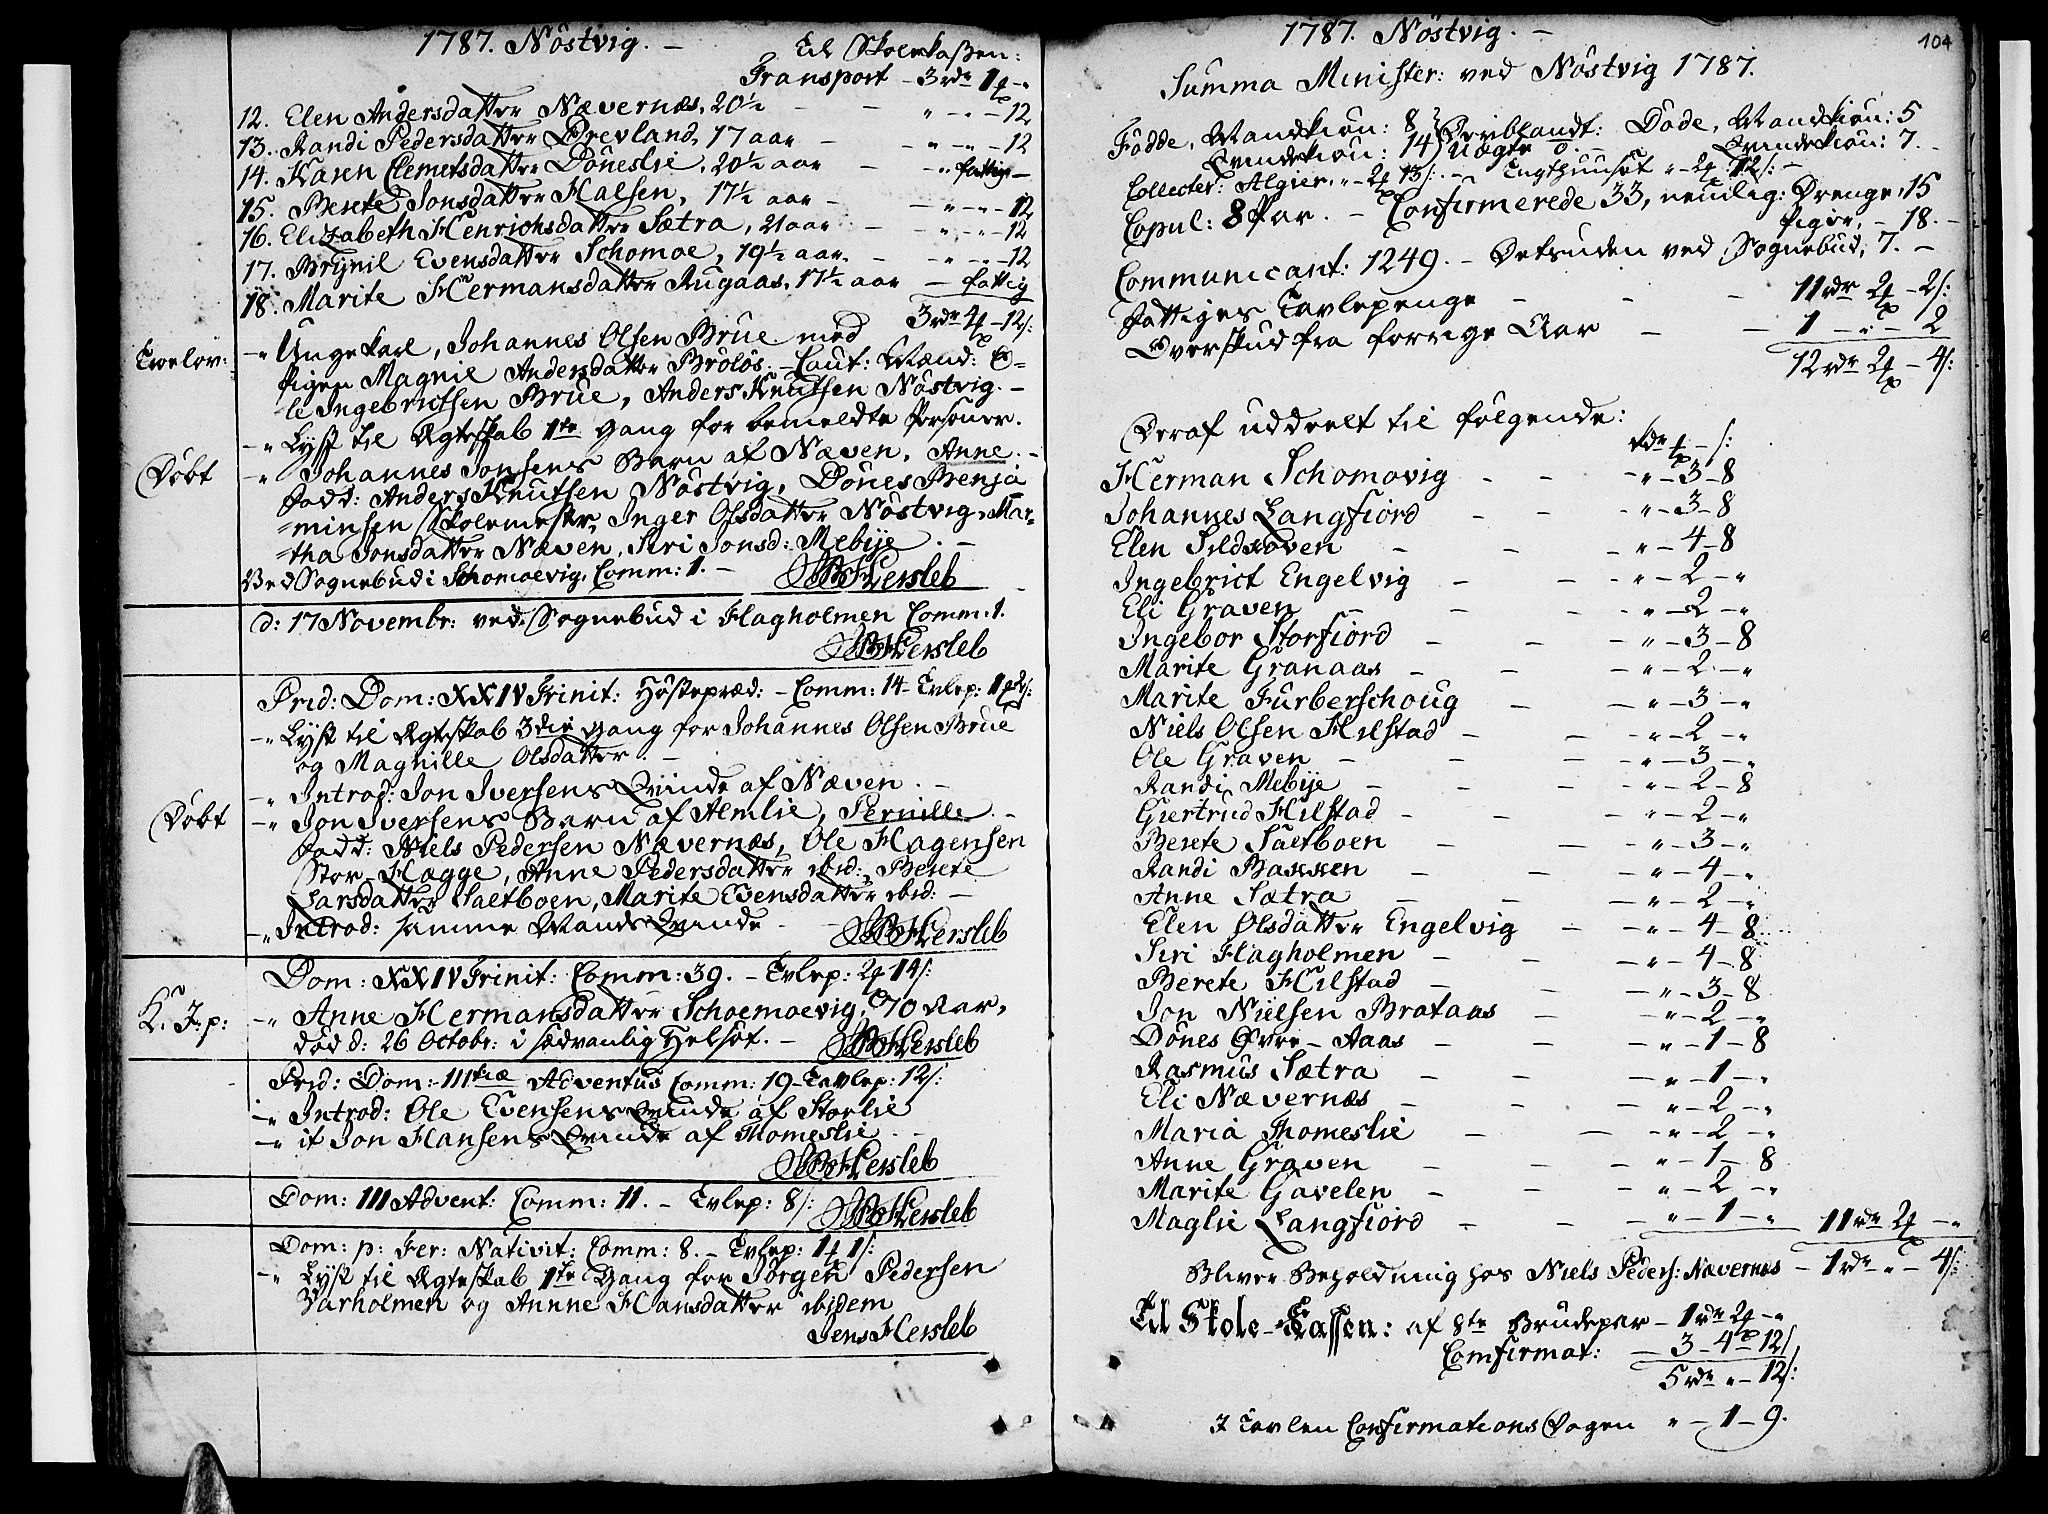 1787. Nöstvig. –
Til Skolekassen:
Transport – 3 rdr 1
12. Elen Andersdatter Nævernæs, 20½ – – „ – „ – 12
13. Randi Pedersdatter Brevland, 17 aar – – „ – „ – 12
14. Karen Clemetsdatter Döneslie, 20½ aar – „ fattig –
15. Berete Jonsdatter Halsen, 17½ aar – – „ – „ – 12
16. Elizabeth Henrichsdatter Sætra, 21 aar – „ – „ – 12
17. Brÿnil Evensdatter Schomoe, 19½ aar. – „ – „ – 12
18. Marite Hermansdatter Rugaas, 17½ aar – fattig
3 rdr 4 – 12 s:
Troelov: –„ Ungekarl, Johannes Olsen Brue med
Pigen Magnil Andersdatter Brölös. – Caut: Mænd: O=
=le Ingebrictsen Brue, Anders Knutsen Nöstvig. –
–„ Lyst til Ægteskab 1te Gang for bemeldte Personer.
Döbt –„ Johannes Jonsens Barn af Næven, Anne. –
Fadd: Anders Knutsen Nöstvig, Dönes Benja
=minsen Skolemester, Inger Olsdatter Nöstvig, Mar=
=tha Jonsdatter Næven, Siri Jonsd: Mebÿe. –
Ved Sognebud i Schomoevig, Comm: 1. – JBHersleb
d: 17 Novembr: ved Sognebud i Flagholmen Comm: 1.
JBHersleb
Prid: Dom: XXIV Trinit: Höstepræd: – Comm: 14 – Tvlep: 1 2 s:
–„ Lyst til Ægteskab 3die Gang for Johannes Olsen Brue
og Magnille Olsdatter. –
–„ Introd: Jon Iversens Qvinde af Næven. –
Döbt –„ Jon Iversens Barn af Almlie, Pernille. –
Fadd: Niels Pedersen Nævernæs, Ole Hagensen
Stor-Hagge, Anne Pedersdatter ibid:, Berete
Larsdatter Saltboen, Marite Evensdatter ibid: –
–„ Introd: samme Mands Qvinde – JBHersleb
Dom: XXIV Trinit: Comm: 39. – Tvlep: 2 14 s:
K. J. p: –„ Anne Hermansdatter Schoemoevig, 70 Aar,
död d: 26 Octobr: i sædvanlig Helsöt. – JBHersleb
Prid: Dom: IIItiæ Adventus Comm: 19 – Tavlep: 12 s:
–„ Introd: Ole Evensens Qvinde af Storlie
–„ it Jon Hansens Qvinde af Thomeslie. –
JBHersleb
Dom: III Advent: Comm: 11. – Tvlep: 8 s: JBHersleb
Dom: p: Fer: Nativit: Comm: 8. – Tvlep: 1 1 s:
–„ Lyst til Ægteskab 1te Gang for Jörgen Pedersen
Varholmen og Annne Hansdatter ibidem
Jens Hersleb
1787. Nöstvig. –
104
Summa Minister: ved Nöstvig 1787.
Födde, Mandkiön: 8 Iblandt: Döde, Mandkiön: 5
Qvindekiön: 14 Uægte 0. – Qvindekiön: 7. –
Collecter: Algier, „ – 2 13 s: – Tugthuuset „ – 2 12 s: –
Copul: 8 Par. – Confirmerede 33, nemlig: Drenge, 15
Piger, – 18. –
Communicant: 1249. – Desuden ved Sognebud, 7. –
Fattiges Tavlepenge – – – 11 rdr 2 – 2 s:
Overskud fra forrige Aar – – 1 – „ – 2
12 rdr 2 – 4 s:
Deraf uddeelt til fölgende:
rdr – s:
Herman Schomovig – – „ – 3 – 8
Johannes Langfiord – – „ – 3 – 8
Elen Sildhoven – – – „ – 4 – 8
Ingebrict Engelvig – – „ – 2 – „
Eli Graven – – – „ – 2 – „
Ingebor Storfiord – – „ – 3 – 8
Marite Granaas – – – „ – 2 – „
Marite Furberschoug – – „ – 3 – „
Niels Olsen Hilstad – – „ – 2 – „
Ole Graven – – – „ – 3 – „
Randi Mebÿe – – – „ – 2 – 8
Giertrud Hilstad – – – „ – 2 – „
Berete Saltboen – – – „ – 3 – „
Randi Bakken – – – „ – 4 – „
Anne Sætra – – – „ – 2 – „
Elen Olsdatter Engelvig – – „ – 4 – 8
Siri Flagholmen – – – „ – 4 – 8
Berete Hilstad – – – „ – 3 – 8
Jon Nielsen Brataas – – „ – 2 – „
Dönes Øvre-Aaas – – – „ – 1 – 8
Rasmus Sætra – – – „ – 1 – „
Eli Nævernæs – – – „ – 2 – „
Maria Thomeslie – – – „ – 2 – „
Anne Graven – – – „ – 1 – 8
Marite Gavelen – – – „ – 2 – „
Maglie Langfiord – – – „ – 1 – „ 11 rdr 2 – „
Bliver Beholdning hos Niels Peders: Nævernæs – 1 rdr „ – 4 s:
Til Skole-Kassen: af 8te Brudepar – 1 rdr 2 – „
Comfirmat: – 3 – 4 – 12 s,
5 rdr „ – 12 s:
I Tavlen Confirmations Dagen „ – 1 – 9.